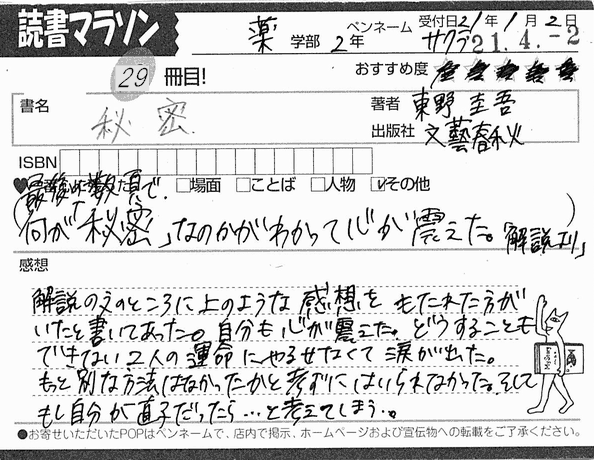 読書マラソン
薬 学部 2年 ペンネーム サクラ 受付日21年1月2日
21.4.-2
29 冊目!
おすすめ度 ★★★★★
書名 秘密
著者 東野 圭吾
出版社 文藝春秋
ISBN
最後の数頁で、 □場面 □ことば □人物 ☑その他
(何が「秘密」なのかがわかって心が震えた。「解説より」)
感想
解説の文のところに上のような感想をもたれた方が
いたと書いてあった。自分も心が震えた。どうすることも
できない2人の運命にやるせなくて涙が出った。
もっと別な方法はなかったかと考ずにはいられなかった。そして
もし自分が直子だったら…と考えてしまう。
●お寄せいただいたPOPはペンネームで、店内で掲示、ホームページおよび宣伝物への転載をご了承ください。